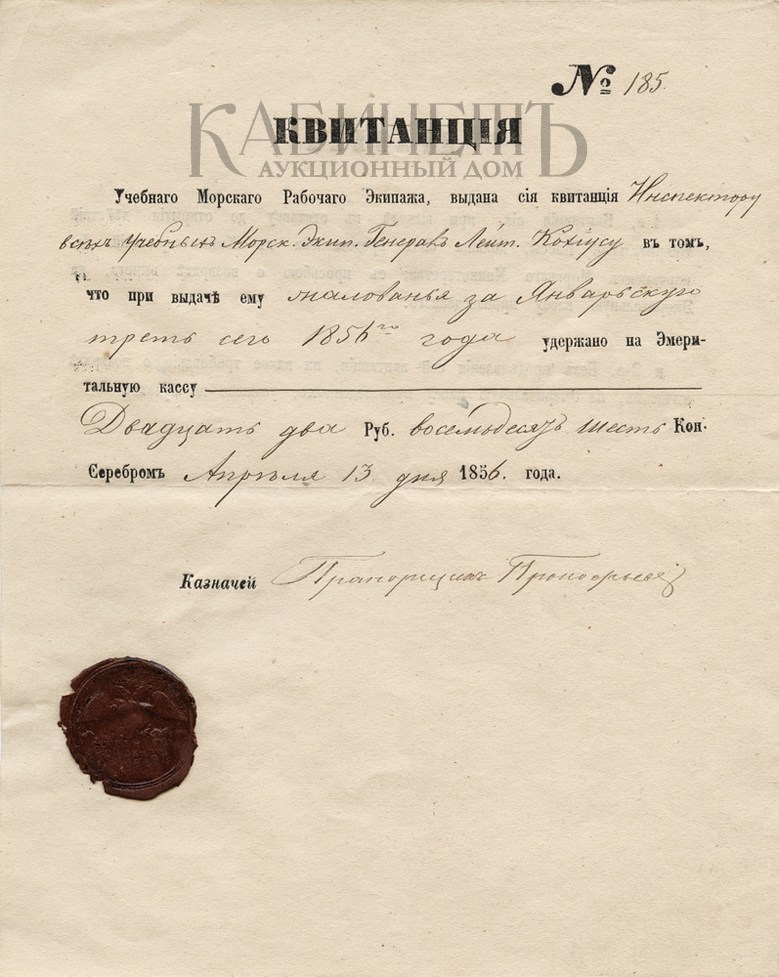 № 185.
КАБИНЕТЪ
КВИТАНЦІЯ
АУКЦИОННЫЙ ДОМ
Учебнаго Морскаго Рабочаго Экипажа, выдана сія квитанція Инспектору
всѣхъ учебныхъ Морск. Экип. Генералъ Лейт. Кохіусу въ томъ,
что при выдачѣ ему жалованья за Январьскую
треть сего 1856го года удержано на Эмери-
тальную кассу
Двадцать два Руб. восемьдесятъ шесть Коп.
Серебромъ Апрѣля 13 дня 1856. года.
Казначей Прапорщикъ Прокофьевъ